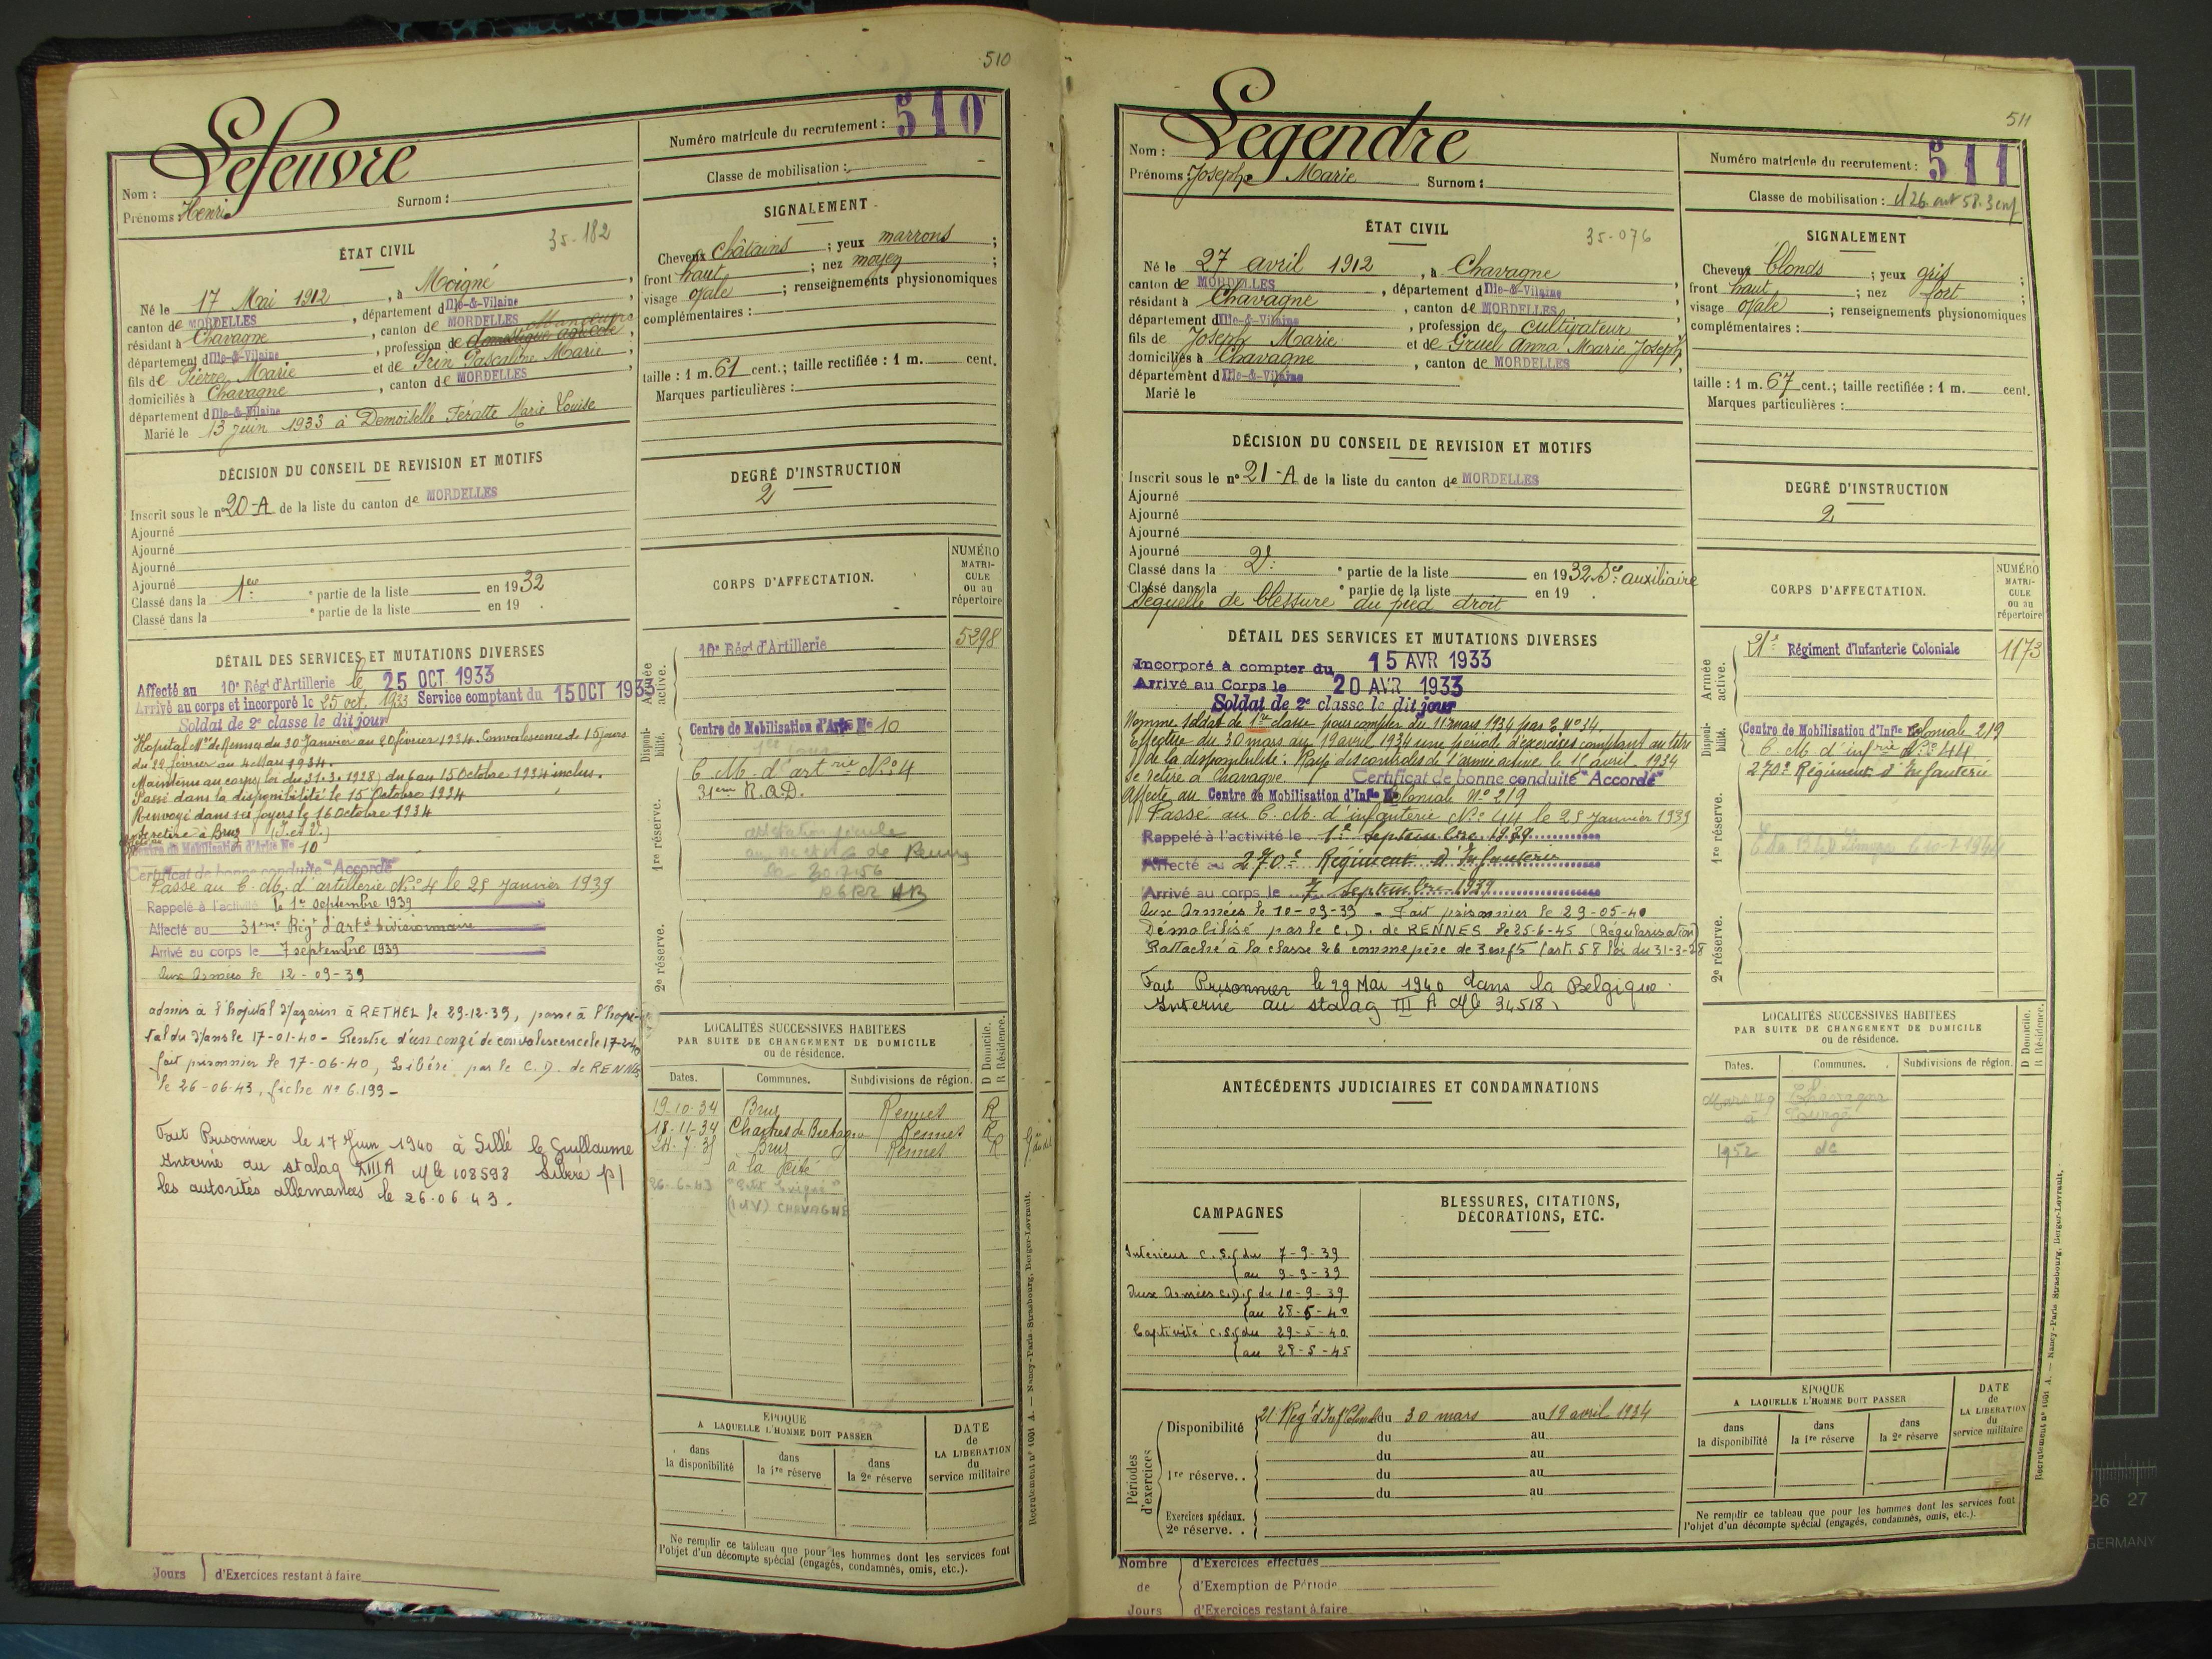 510
Lefeuvre
Nom :
Prénoms : Henri
Surnom :
Numéro matricule du recrutement : 510
Classe de mobilisation :
ÉTAT CIVIL
35-182
Né le 17 Mai 1912, à Moigné
canton de MORDELLES, département d'Ille-&-Vilaine
résidant à Chavagne, canton de MORDELLES
département d'Ille-&-Vilaine, profession de domestique agricole Manoeuvre
fils de Pierre Marie et de Frin Pascaline Marie
domiciliés à Chavagne, canton de MORDELLES
département d'Ille-&-Vilaine
Marié le 13 Juin 1933 à Demoiselle Feratte Marie Louise
SIGNALEMENT
Cheveux Châtains ; yeux marrons ;
front haut ; nez moyen ;
visage ovale ; renseignements physionomiques
complémentaires :
taille : 1 m. 61 cent.; taille rectifiée : 1 m. cent.
Marques particulières :
DÉCISION DU CONSEIL DE REVISION ET MOTIFS
Inscrit sous le n° 20-A de la liste du canton de MORDELLES
Ajourné
Ajourné
Ajourné
Ajourné
Classé dans la 1ere ° partie de la liste en 1932
Classé dans la ° partie de la liste en 19 .
DEGRÉ D'INSTRUCTION
2
DÉTAIL DES SERVICES ET MUTATIONS DIVERSES
Affecté au 10e Régt d'Artillerie le 25 OCT 1933
Arrivé au corps et incorporé le 25 oct. 1933 Service comptant du 15 OCT 1933
Soldat de 2e classe le dit jour
Hopital Mre de Rennes du 30 Janvier au 20 février 1934. Convalescence de 15 jours
du 22 février au 4 Mars 1934.
Maintenu au corps (loi du 31.3.1928) du 6 au 15 Octobre 1934 inclus.
Passé dans la disponibilité le 15 Octobre 1934
Renvoyé dans ses foyers le 16 Octobre 1934
se retire à Bruz (I. et V.)
Centre de Mobilisation d'Artie No 10
Certificat de bonne conduite "Accordé"
Passé au C. M. d'artillerie N° 4 le 25 Janvier 1939
Rappelé à l'activité le 1er septembre 1939
Affecté au 31eme Régt d'Artie Divisionnaire
Arrivé au corps le 7 septembre 1939
Aux Armées le 12-09-39
admis à l'hopital Mazarin à RETHEL le 29-12-39, passe à l'hopi-
tal du Mans le 17-01-40 - Rentre d'un congé de convalescence le 17-2-40
fait prisonnier le 17-06-40, Libéré par le C. D. de RENNES
le 26-06-43, fiche No 6.199 -
Fait Prisonnier le 17 Juin 1940 à Sillé le Guillaume
Interné au stalag XIII A Mle 108598 Libéré p/
les autorités allemandes le 26.06.43.
Jours d'Exercices restant à faire
CORPS D'AFFECTATION.
NUMÉRO MATRI-CULE ou au répertoire
Armée active.
10e Régt d'Artillerie 5298
Disponi-bilité.
Centre de Mobilisation d'Artie No 10
1re réserve.
C. M. d'art rie N° 4
31em R.A.D.
20.7.56
2e réserve.
LOCALITÉS SUCCESSIVES HABITÉES
PAR SUITE DE CHANGEMENT DE DOMICILE
ou de résidence.
D Domicile. R Résidence.
Dates. Communes. Subdivisions de région.
19-10-34 Bruz Rennes R
18-11-34 Chartres de Bretagne Rennes R
24-7-35 Bruz Rennes R
à la Cité
26-6-43 (I et V) CHAVAGNE
ÉPOQUE
A LAQUELLE L'HOMME DOIT PASSER
dans la disponibilité
dans la 1re réserve
dans la 2e réserve
DATE de LA LIBÉRATION du service militaire
Ne remplir ce tableau que pour les hommes dont les services font
l'objet d'un décompte spécial (engagés, condamnés, omis, etc.).
Recrutement n° 1001 A. — Nancy-Paris-Strasbourg, Berger-Levrault.
511
Legendre
Nom :
Prénoms : Joseph Marie Surnom :
Numéro matricule du recrutement : 511
Classe de mobilisation : cl 26 art 58. 3 enf
ÉTAT CIVIL
35-076
Né le 27 avril 1912, à Chavagne
canton de MORDELLES, département d'Ille-&-Vilaine
résidant à Chavagne, canton de MORDELLES
département d'Ille-&-Vilaine, profession de cultivateur
fils de Joseph Marie et de Gruel Anna Marie Joseph
domiciliés à Chavagne, canton de MORDELLES
département d'Ille-&-Vilaine
Marié le
SIGNALEMENT
Cheveux blonds ; yeux gris ;
front haut ; nez fort ;
visage ovale ; renseignements physionomiques
complémentaires :
taille : 1 m. 67 cent.; taille rectifiée : 1 m. cent.
Marques particulières :
DÉCISION DU CONSEIL DE REVISION ET MOTIFS
Inscrit sous le n° 21-A de la liste du canton de MORDELLES
Ajourné
Ajourné
Ajourné
Ajourné
Classé dans la 2e ° partie de la liste en 1932 Sce auxiliaire
Classé dans la ° partie de la liste en 19 .
Séquelle de blessure du pied droit
DEGRÉ D'INSTRUCTION
2
DÉTAIL DES SERVICES ET MUTATIONS DIVERSES
Incorporé à compter du 15 AVR 1933
Arrivé au Corps le 20 AVR 1933
Soldat de 2e classe le dit jour
Nommé soldat de 1re classe pour compter du 11 mars 1934
Effectue du 30 mars au 19 avril 1934 une période d'exercices comptant au titre
de la disponibilité. Rayé des controles de l'armée active le 15 avril 1934
Se retire à Chavagne Certificat de bonne conduite "Accordé"
Affecté au Centre de Mobilisation d'Infie Coloniale N° 219
Passé au C. M. d'infanterie N° 44 le 25 Janvier 1939
Rappelé à l'activité le 1er septembre 1939
Affecté au 270e Régiment d'Infanterie
Arrivé au corps le 7 Septembre 1939
Aux Armées le 10-09-39 - Fait prisonnier le 29-05-40
Démobilisé par le C. D. de RENNES le 25-6-45 (Régularisation)
Rattaché à la classe 26 comme père de 3 enfts (art. 58 loi du 31-3-28
Fait Prisonnier le 29 Mai 1940 dans la Belgique
Interné au stalag III A Mle 34518.
ANTÉCÉDENTS JUDICIAIRES ET CONDAMNATIONS
CAMPAGNES
Intérieur C.S. du 7-9-39
au 9-9-39
Aux Armées C.D. du 10-9-39
au 28-5-40
Captivité C.S. du 29-5-40
au 28-5-45
BLESSURES, CITATIONS,
DÉCORATIONS, ETC.
Périodes d'exercices
Disponibilité 21 Régt d'Inf Colon du 30 mars au 19 avril 1934
du au
du au
1re réserve.. du au
du au
Exercices spéciaux.
2e réserve. .
Nombre de Jours
d'Exercices effectués
d'Exemption de Période
d'Exercices restant à faire
CORPS D'AFFECTATION.
NUMÉRO MATRI-CULE ou au répertoire
Armée active.
21e Régiment d'Infanterie Coloniale 1173
Disponi-bilité.
Centre de Mobilisation d'Infie Coloniale 219
C. M. d'inf rie N° 44
270e Régiment d'Infanterie
1re réserve.
2e réserve.
LOCALITÉS SUCCESSIVES HABITÉES
PAR SUITE DE CHANGEMENT DE DOMICILE
ou de résidence.
D Domicile. R Résidence.
Dates. Communes. Subdivisions de région.
Mars 49 Chavagne
1952 dc
ÉPOQUE
A LAQUELLE L'HOMME DOIT PASSER
dans la disponibilité
dans la 1re réserve
dans la 2e réserve
DATE de LA LIBÉRATION du service militaire
Ne remplir ce tableau que pour les hommes dont les services font
l'objet d'un décompte spécial (engagés, condamnés, omis, etc.).
Recrutement n° 1001 A. — Nancy-Paris Strasbourg, Berger-Levrault.
26 27
GERMANY